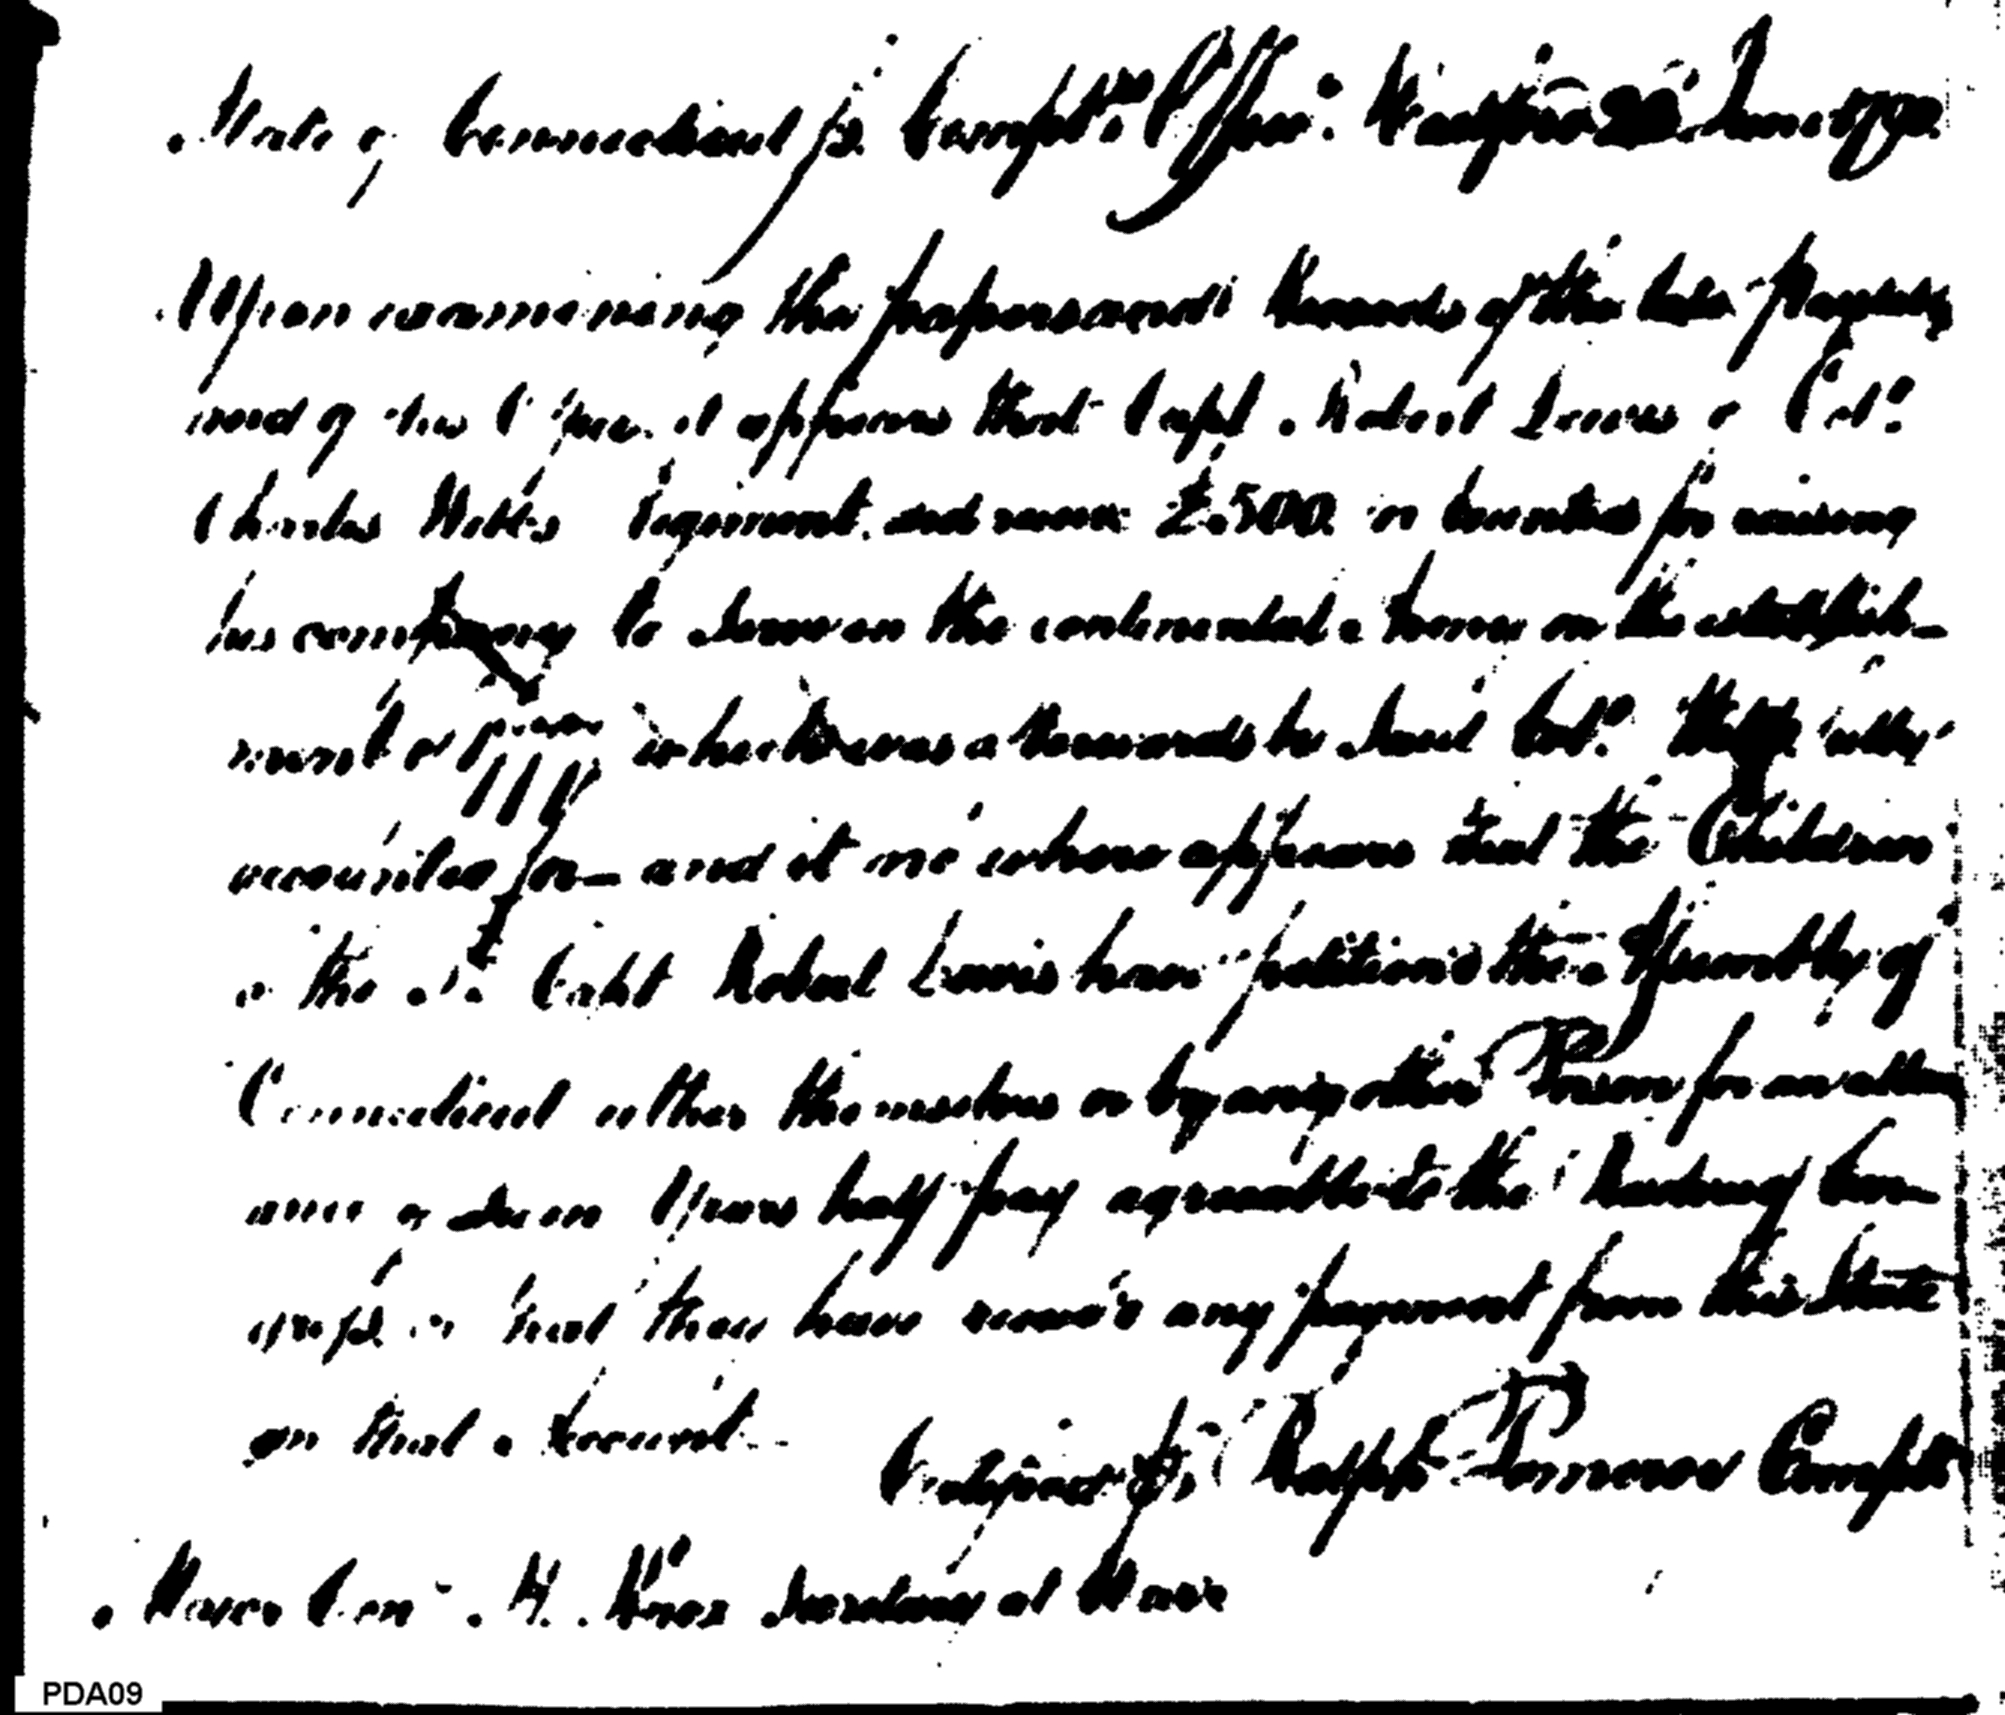 State of Connecticut ss. Compt.rs Office. Hartford June
Upon examining the papers and records of the late
and of this Office it appears that Capt. Robert Lewis of Col.o
Charles Webbs Regiment. did receive £.500. in bounties for raising
his company to serve in the continental Army on the establish-
ment of 1777 which was afterwards by said Col.o Webb
accounted for — and it no where appears that the Children
of the s.d Capt Robert Lewis have petition'd the Assembly of
Connecticut either themselves or by any other Person for an allow
ance of seven Years half pay agreeable to the
or that they have receiv'd any payment from this State
on that Account.
Ralph Pomeroy Compt
Major Gen.l H. Knox Secretary at War
PDA09